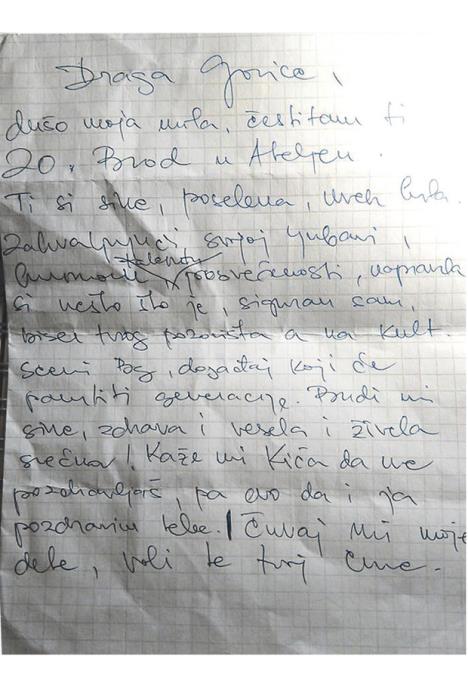 Draga Gorice,
dušo moja mila, čestitam ti
20. Brod u Ateljeu.
Ti si sine, poselena, uvek bila.
Zahvaljujući svojoj ljubavi,
talentu
humoru posvećenosti, napravila
si nešto što je, siguran sam,
biser tvog pozorišta a na kult.
sceni Bg, događaj koji će
pamtiti generacije. Budi mi
sine, zdrava i vesela i živela
srećna! Kaže mi Kića da me
pozdravljaš, pa evo da i ja
pozdravim tebe. Čuvaj mi moje
dete, voli te tvoj